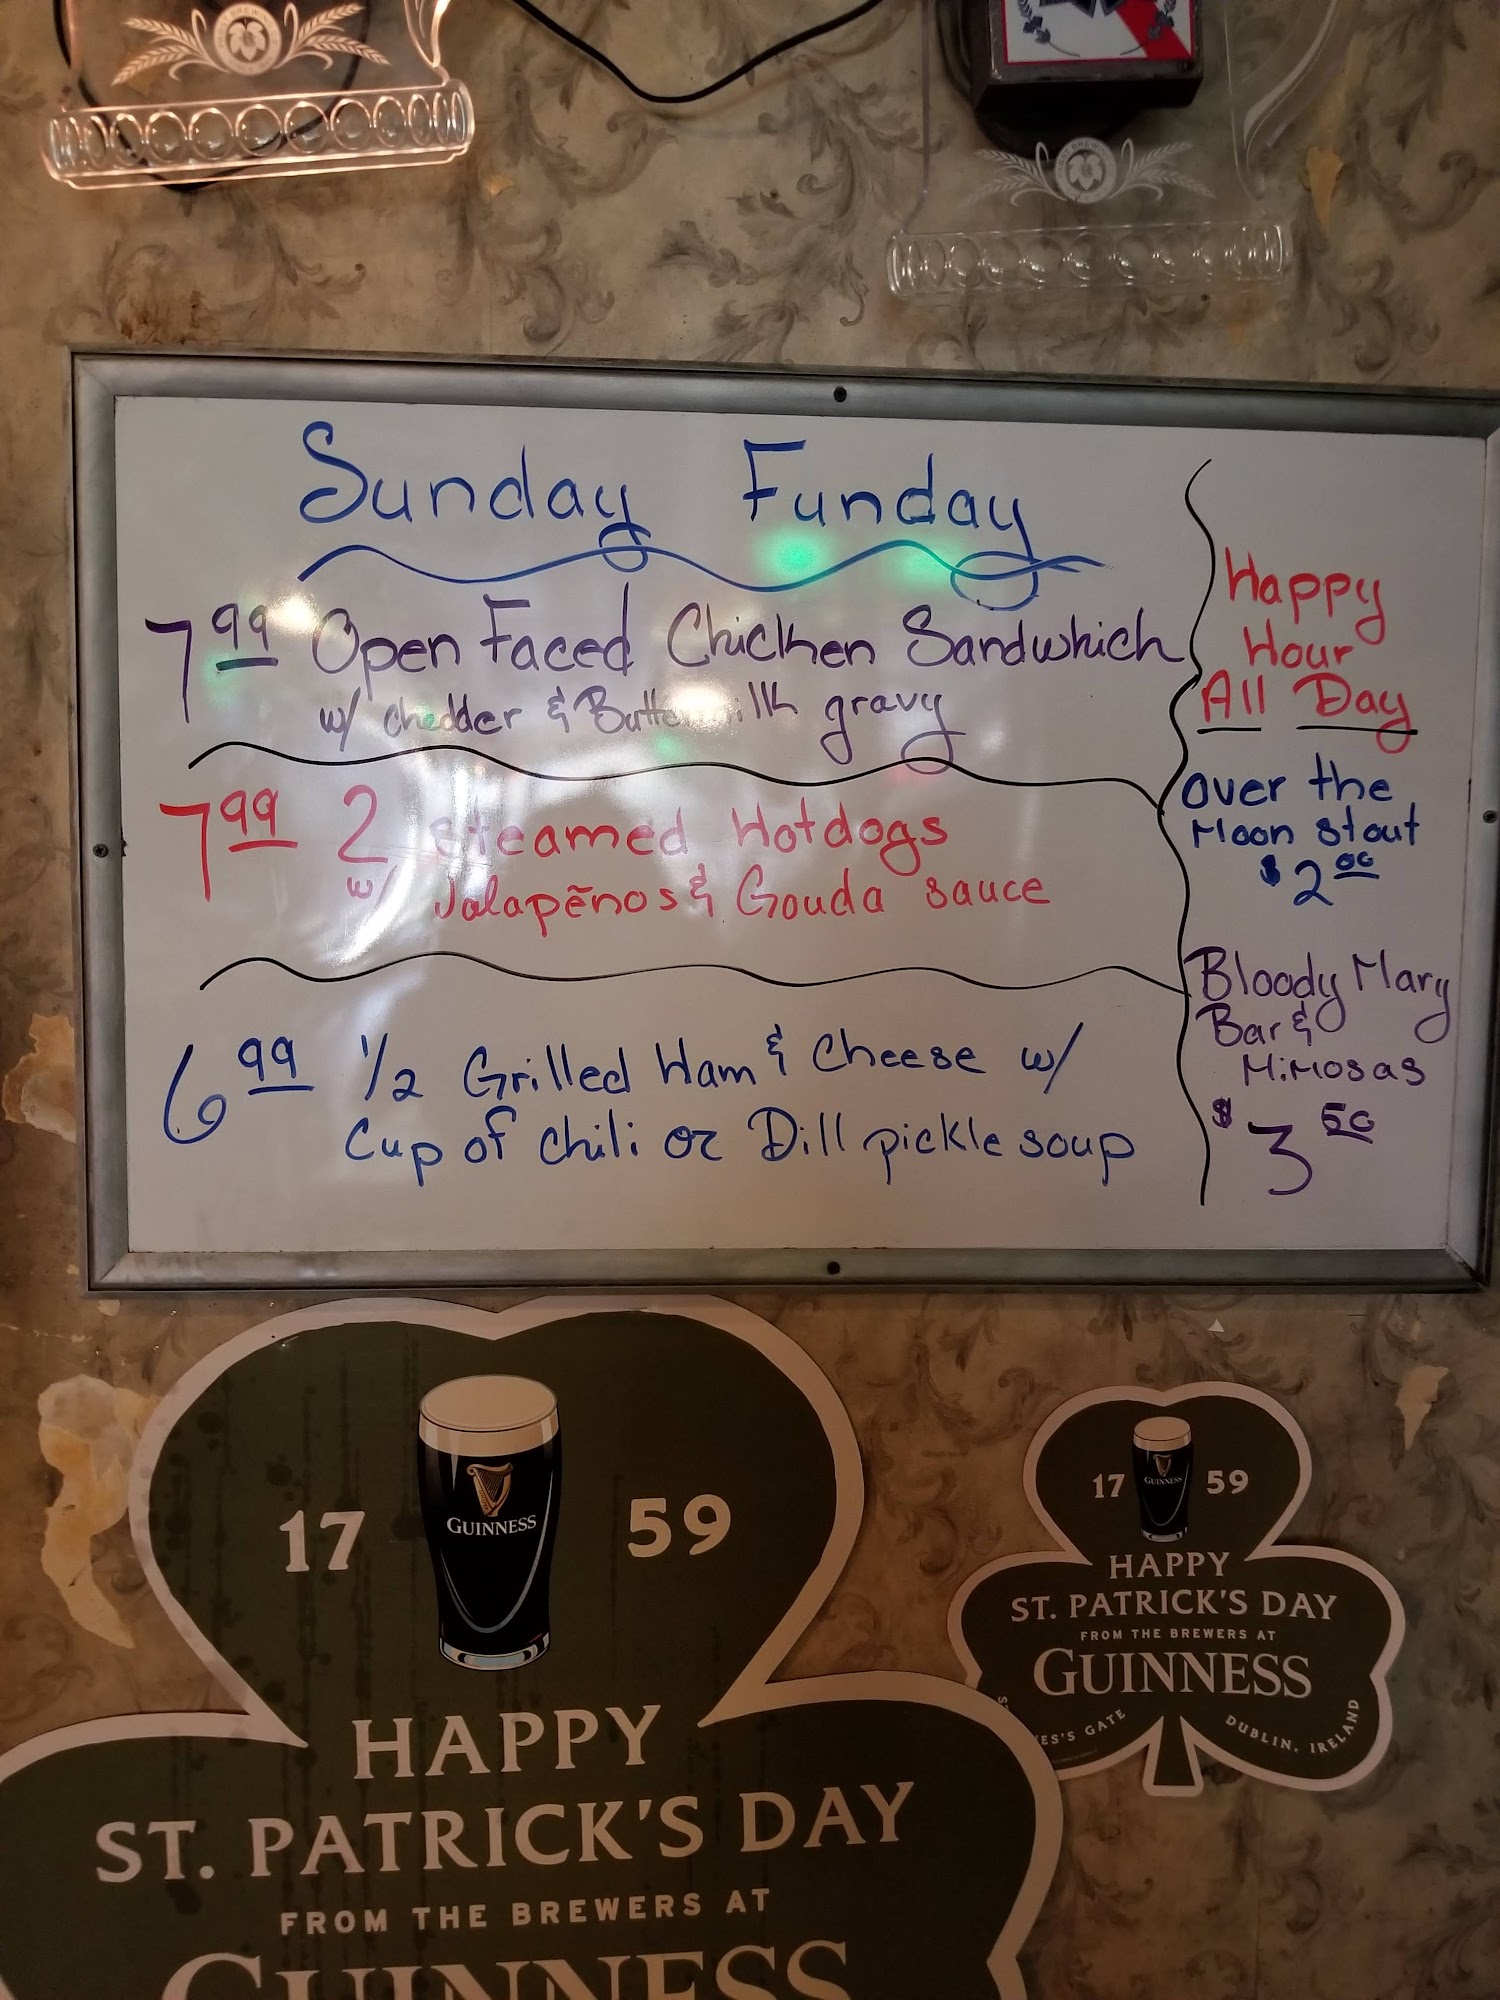 Sunday Funday
7.99 Open Faced Chicken Sandwhich
w/ chedder & Buttermilk gravy
7.99 2 steamed Hotdogs
w/ Jalapeños & Gouda sauce
6.99 1/2 Grilled Ham & Cheese w/
Cup of chili or Dill pickle soup
Happy
Hour
All Day
over the
Moon stout
$2.00
Bloody Mary
Bar &
Mimosas
$3.50
17 59
GUINNESS
HAPPY
ST. PATRICK'S DAY
FROM THE BREWERS AT
GUINNESS
17 59
GUINNESS
HAPPY
ST. PATRICK'S DAY
FROM THE BREWERS AT
GUINNESS
GATE DUBLIN, IRELAND